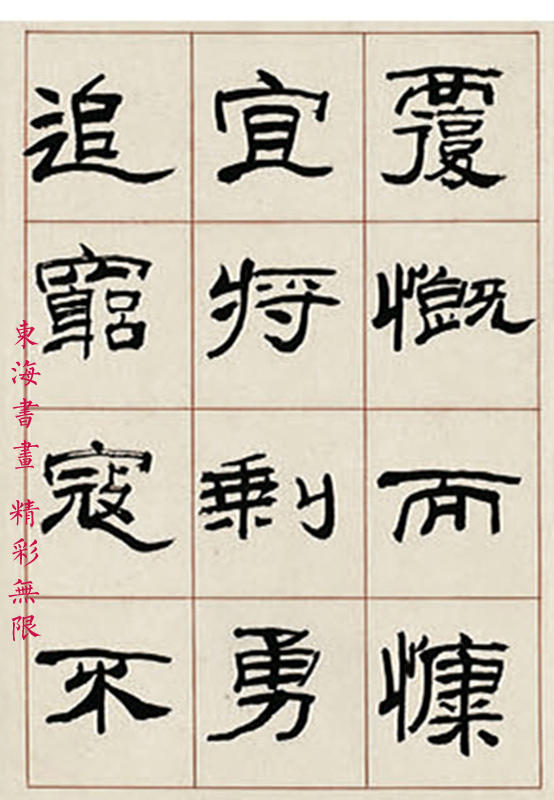 覆慨而慷
宜將剩勇
追窮寇不
東海書畫 精彩無限